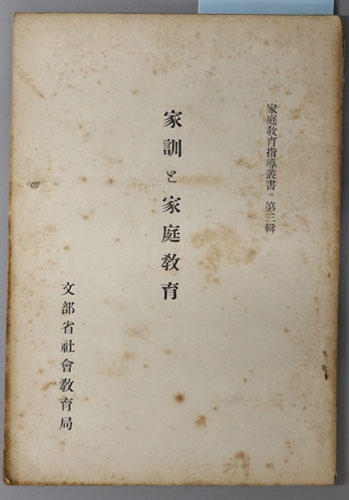 家庭教育指導叢書・第三輯
家訓と家庭教育
文部省社會教育局